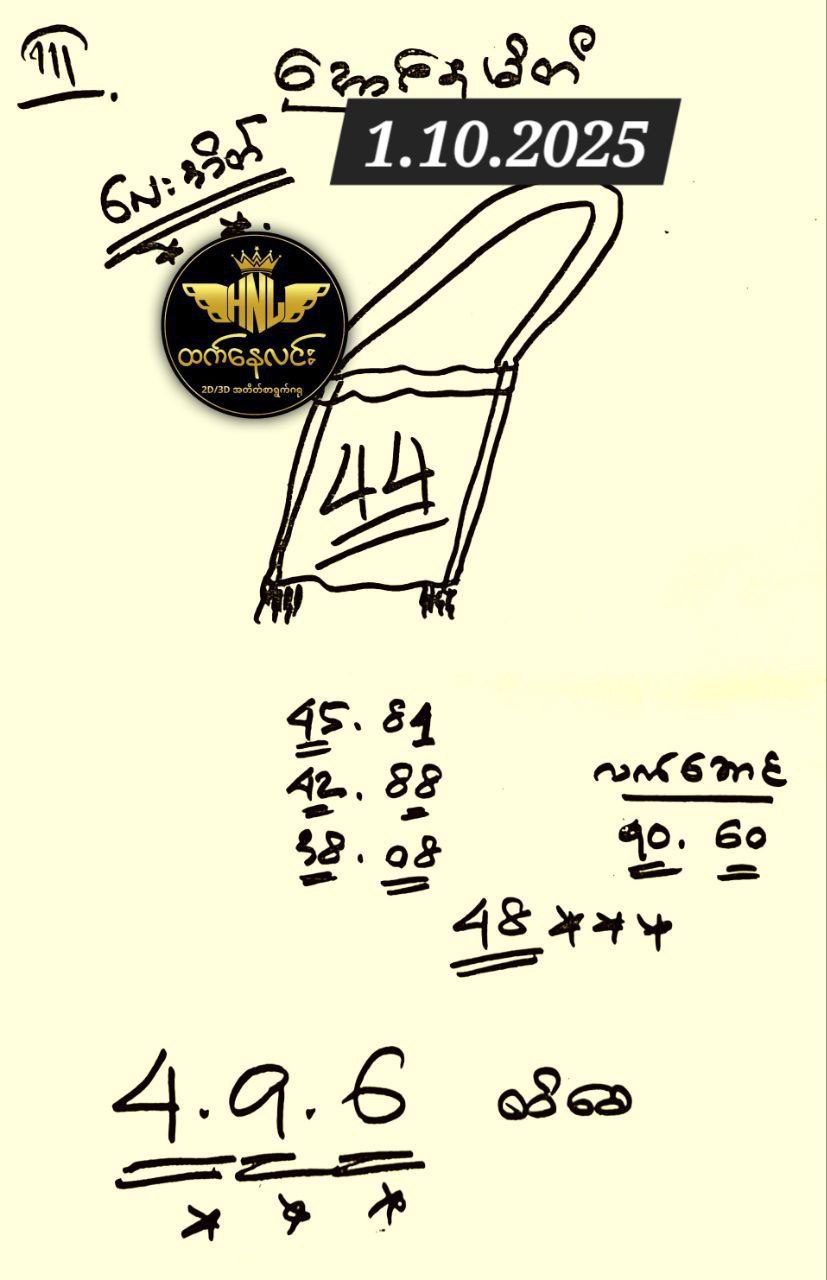 1.10.2025
လေးအိတ်
HNL
ထက်နေလင်း
2D/3D အတိတ်စာရွက်ဂရု
44
45. 84
42. 88
38. 08
လက်ဆောင်
90. 60
48 ***
4.9.6
ထိပ်စေ